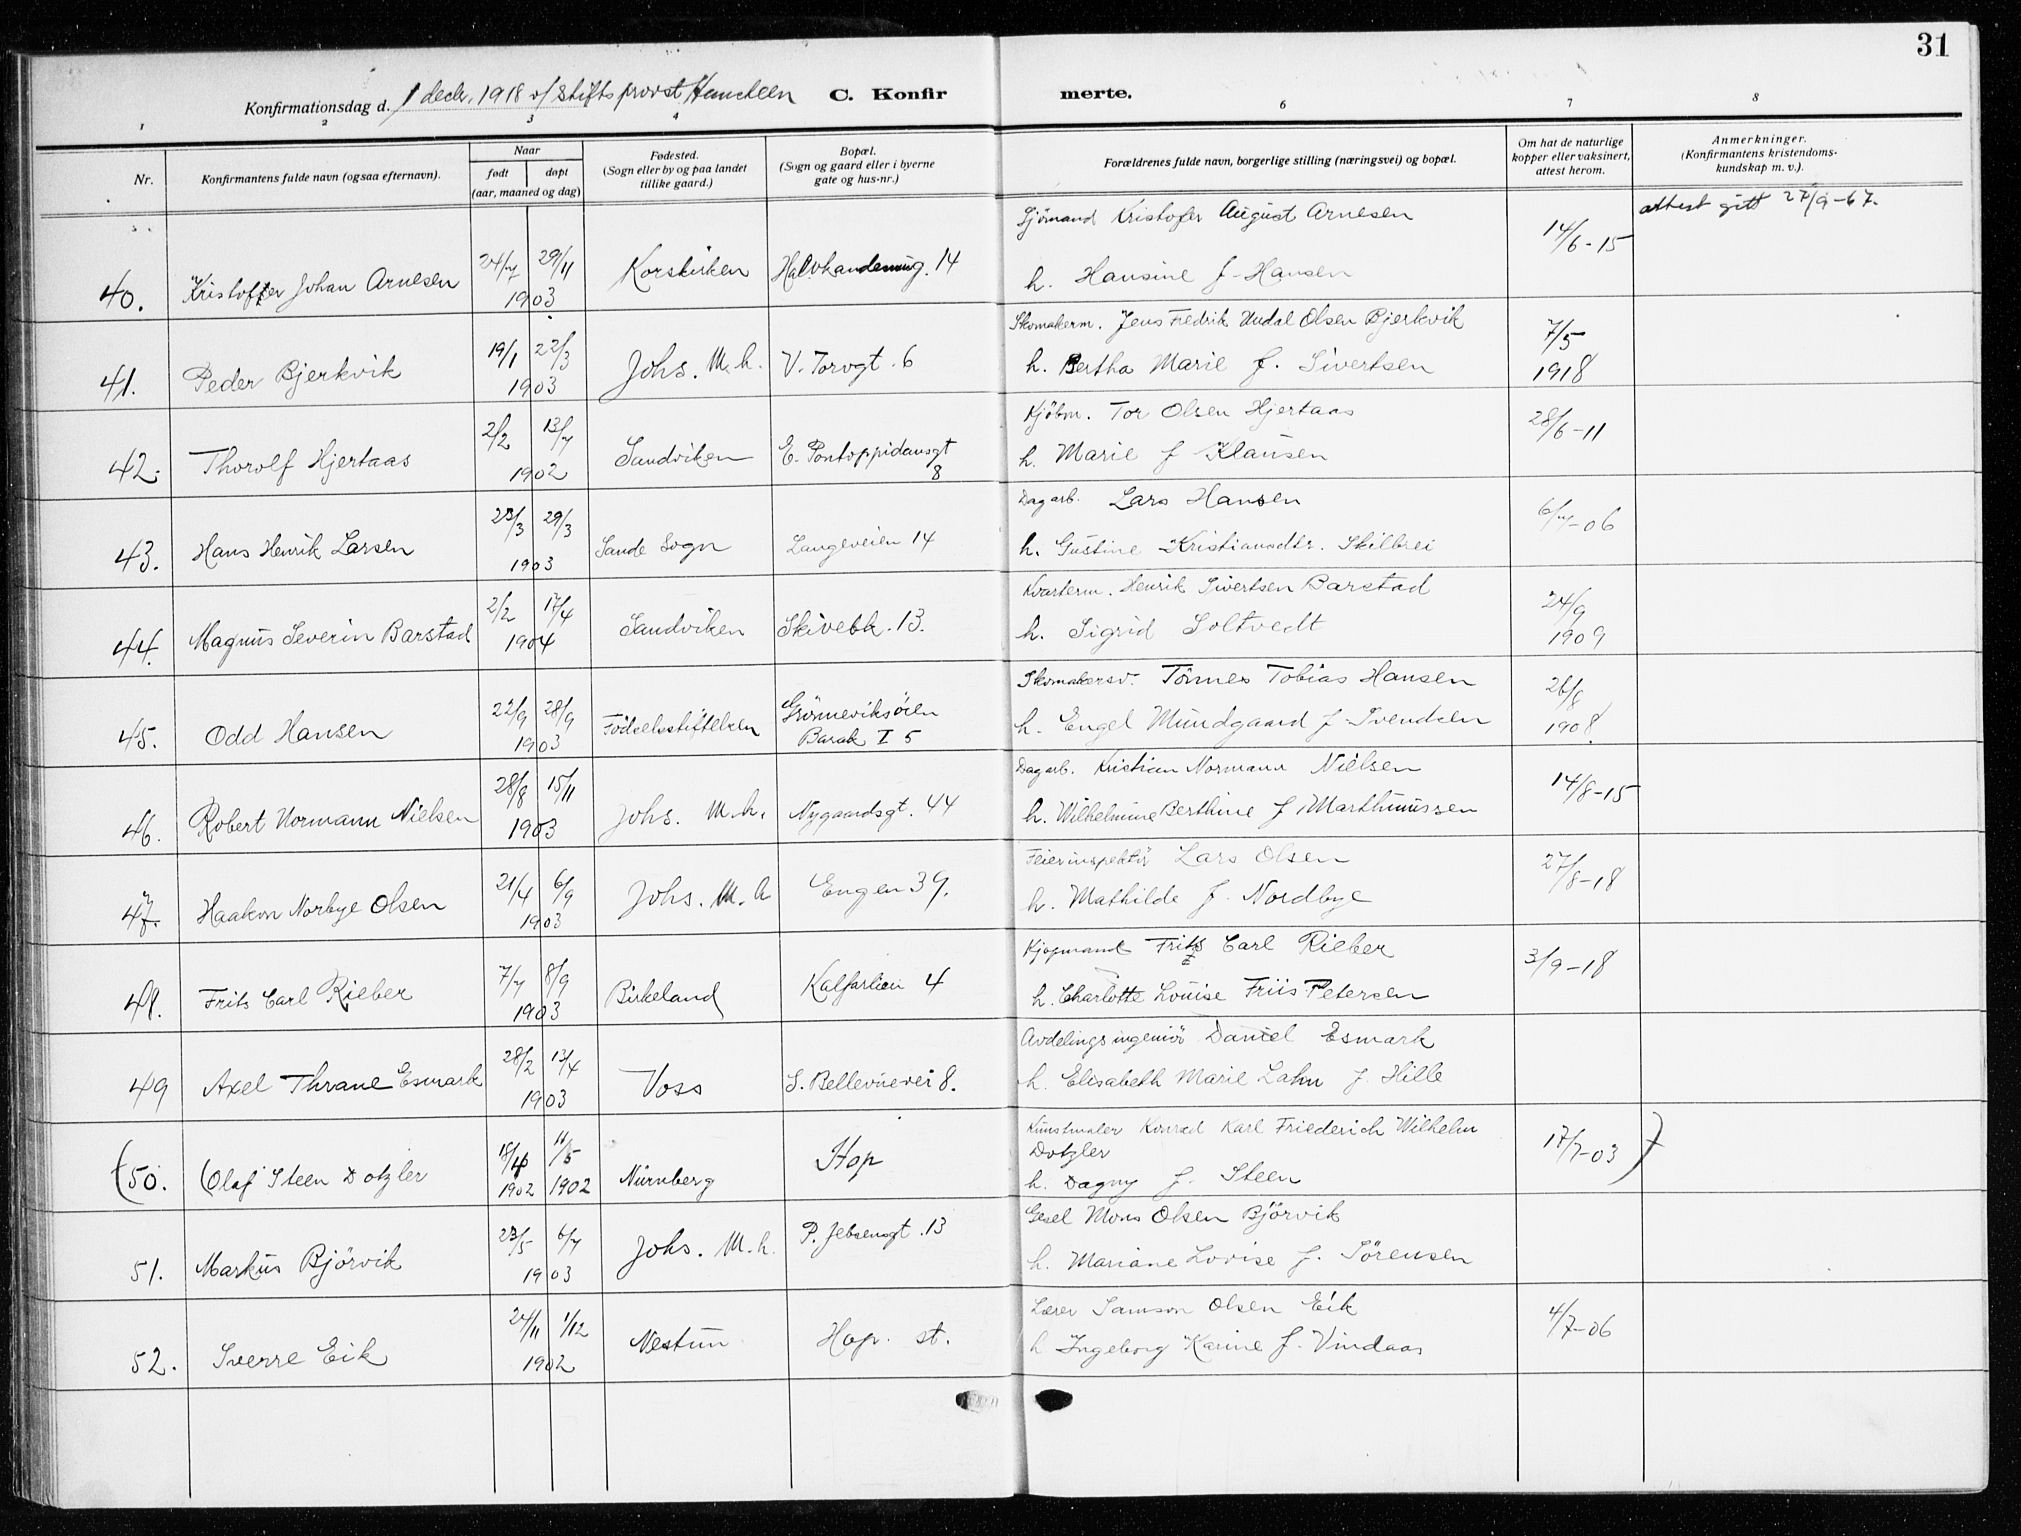 31
Konfirmationsdag d. 1 decbr. 1918 v/ stiftsprovst C. Konfirmerte.
1 2 3 4 6 7 8
Nr.
Konfirmantens fulde navn (ogsaa efternavn).
Naar
født døpt
(aar, maaned og dag)
Fødested.
(Sogn eller by og paa landet
tillike gaard.)
Bopæl.
(Sogn og gaard eller i byerne
gate og hus-nr.)
Forældrenes fulde navn, borgerlige stilling (næringsvei) og bopæl.
Om hat de naturlige
kopper eller vaksinert,
attest herom.
Anmerkninger.
(Konfirmantens kristendoms-
kundskap m. v.).
attest gitt 27/9-67.
Sjömand Kristofer August Arnesen
40. Kristoffer Johan Arnesen 24/7 29/11 Korskirken 14 14/6-15
1903 h. Hansine f. Hansen
Skomakerm. Jens Fredrik Undal Olsen Bjerkvik
41. Peder Bjerkvik 19/1 22/3 Johs. M.h. V. Torvgt. 6 7/5
1903 h. Bertha Marie f. Sivertsen 1918
Kjöbm. Tor Olsen Hjertaas
42. Thorolf Hjertaas 2/2 13/7 Sandviken E. Pontoppidansgt 28/6-11
1902 8 h. Marie f Klausen
Dagarb. Lars Hansen
43. Hans Henrik Larsen 23/3 29/3 Sande Sogn Langeveien 14 6/7-06
1903 h. Gustine Kristiansdtr. Skilbrei
Kvarterm. Henrik Sivertsen Barstad
44. Magnus Severin Barstad 2/2 17/4 Sandviken Skivebk. 13. 24/9
1904 h. Sigrid Soltvedt 1909
Skomakersv. Tönnes Tobias Hansen
45. Odd Hansen 22/9 28/9 Födselsstiftelsen Grönneviksören 26/8
1903 Barak I 5 h. Engel Mundgaard f. Svendsen 1908
Dagarb. Kristian Normann Nielsen
46. Robert Normann Nielsen 28/8 15/11 Johs. M.h. Nygaardsgt. 44 14/8-15
1903 h. Wilhelmine Berthine f Marthinussen
Feierinspektör Lars Olsen
47. Haakon Norbye Olsen 21/4 6/9 Johs. M.h Engen 39. 27/8-18
1903 h. Mathilde f. Nordbye
Kjöpmand Frits Carl Rieber
48. Frits Carl Rieber 7/7 8/9 Birkeland Kalfarlien 4 3/9-18
1903 h. Charlotte Louise Friis-Petersen
Avdelingsingeniör Daniel Esmark
49 Axel Thrane Esmark 28/2 13/4 Voss S. Bellevuevei 8.
1903 h. Elisabeth Marie Lahn f. Hille
Kunstmaler Konrad Karl Friederich Wilhelm
Dotzler
(50. (Olaf Steen Dotzler 18/4 11/5 Nürnberg Hop 17/7-03 )
1902 1902 h. Dagny f. Steen
Gesel Mons Olsen Björvik
51. Markus Björvik 23/5 6/7 Johs. M.h. P. Jebsensgt. 13
1903 h. Mariane Lovise f Sörensen
Lærer Samson Olsen Eik
52. Sverre Eik 24/11 1/12 Nestun Hop. st. 4/7-06
1902 h Ingeborg Karine f. Vindaas